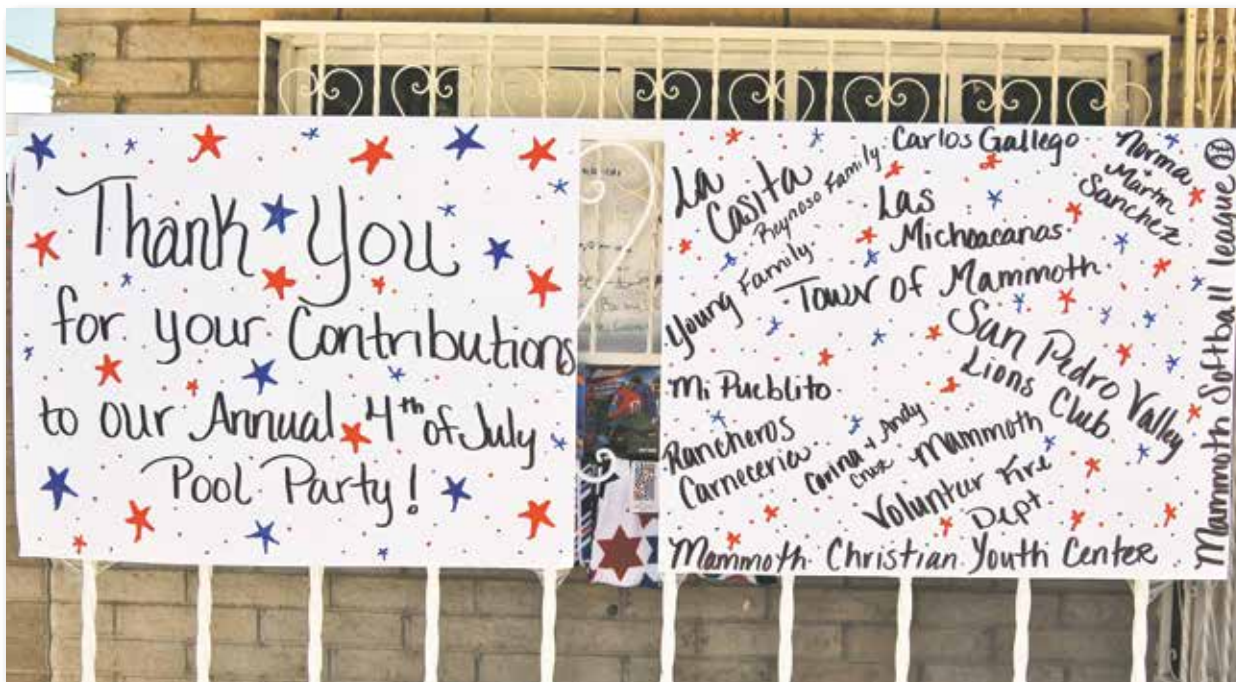 Thank You
for your Contributions
to our Annual 4th of July
Pool Party!
La
Casita
Reynoso Family
Carlos Gallego
Norma
+
Martin
Sanchez
Las
Michoacanas
Young Family
Town of Mammoth
San Pedro Valley
Lions Club
Mi Pueblito
Rancheros
Carneceria
Corina & Andy
Cruz
Mammoth
Volunteer Fire
Dept
Mammoth Christian Youth Center
Mammoth Softball league